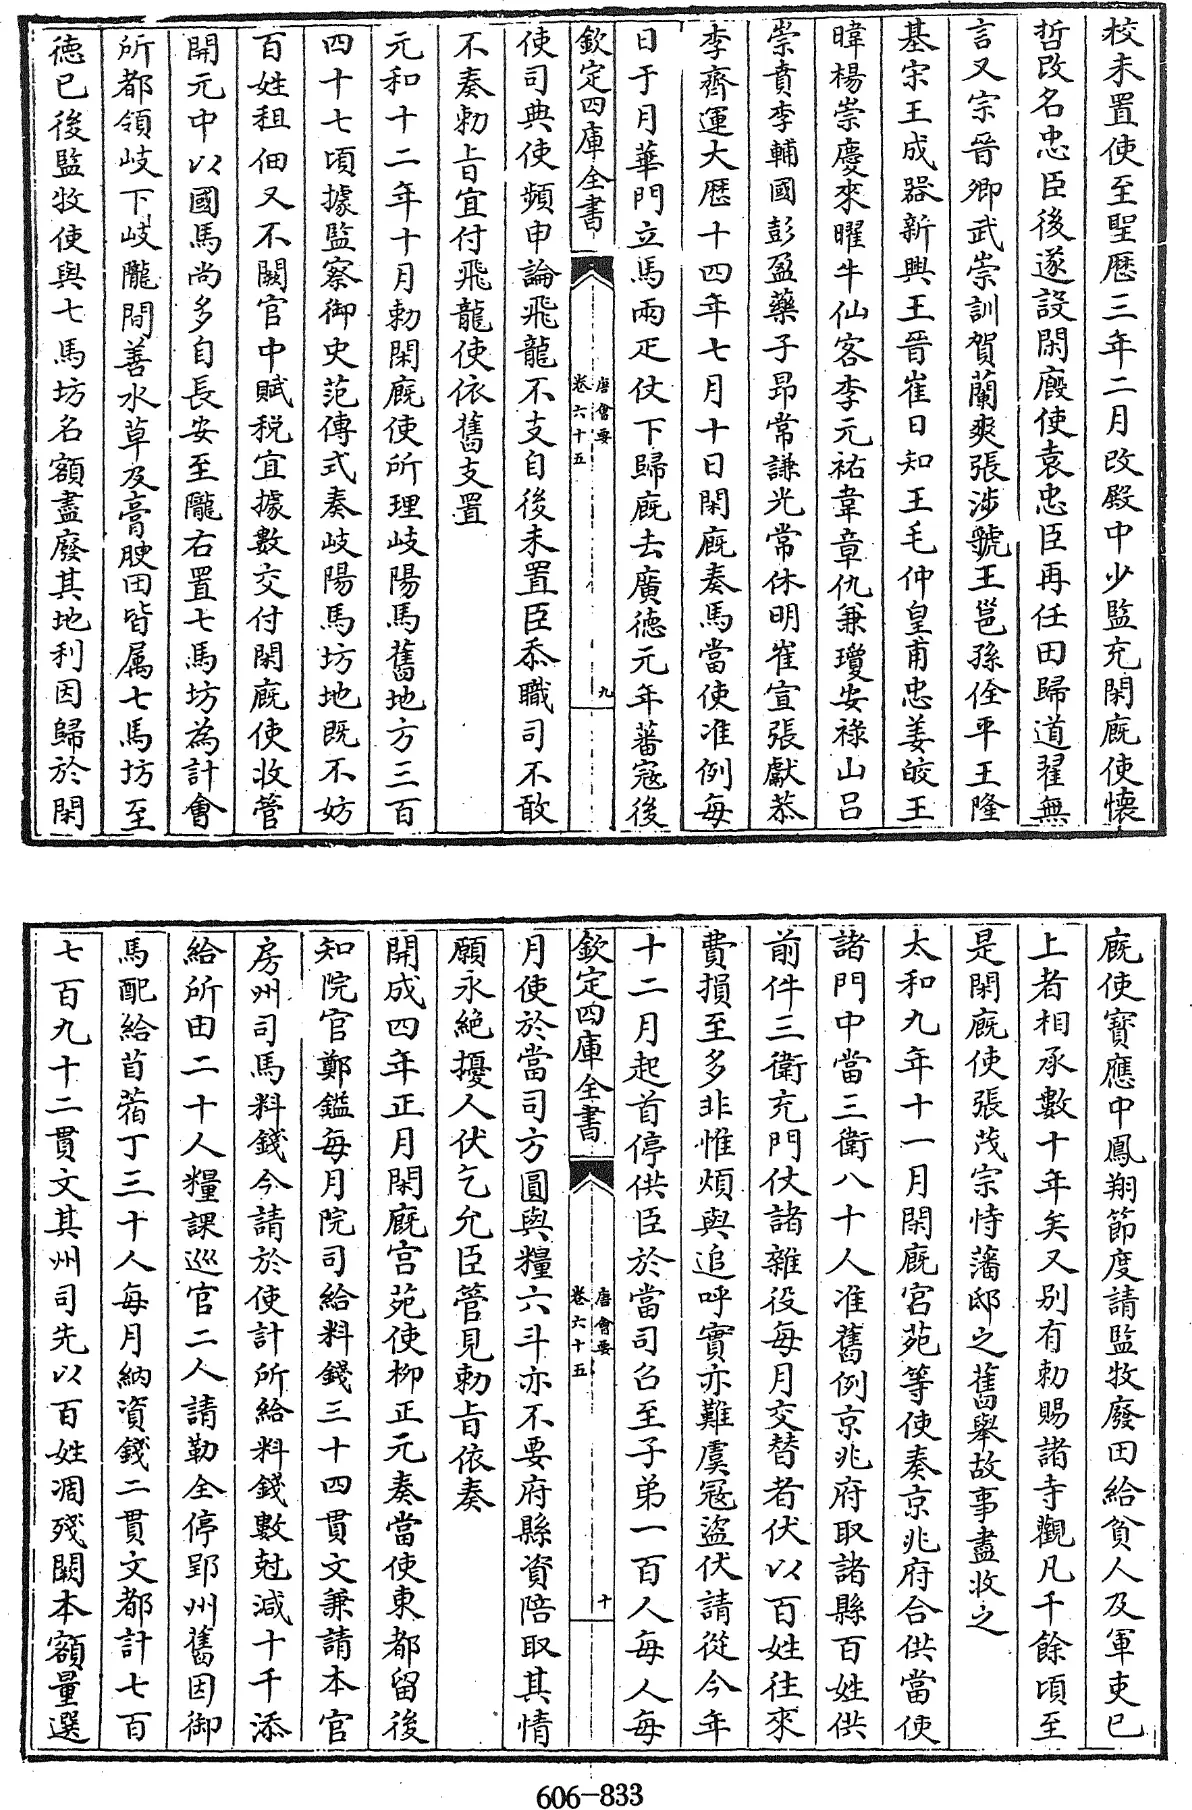 校未置使至聖厯三年二月改殿中少監充閑廐使懷
哲改名忠臣後遂設閑廐使袁忠臣再任田歸道翟無
言又宗晉卿武崇訓賀蘭爽張涉虢王邕孫佺平王隆
基宋王成器新興王晉崔日知王毛仲皇甫忠姜皎王
暐楊崇慶來曜牛仙客李元祐韋章仇兼瓊安祿山吕
崇賁李輔國彭盈藥子昂常謙光常休明崔宣張獻恭
李齊運大厯十四年七月十日閑廐奏馬當使准例每
日于月華門立馬兩疋仗下歸廐去廣德元年蕃冦後
欽定四庫全書
唐會要
卷六十五
九
使司典使頻申論飛龍不支自後未置臣忝職司不敢
不奏勅㫖宜付飛龍使依舊支置
元和十二年十月勅閑廐使所理岐陽馬舊地方三百
四十七頃據監察御史范傳式奏岐陽馬坊地既不妨
百姓租佃又不闕官中賦税宜據數交付閑廐使收管
開元中以國馬尚多自長安至隴右置七馬坊為計會
所都領岐下岐隴間善水草及膏腴田皆属七馬坊至
德已後監牧使與七馬坊名額盡廢其地利因歸於閑
廐使寳應中鳳翔節度請監牧廢田給貧人及軍吏已
上者相承數十年矣又别有勅賜諸寺觀凡千餘頃至
是閑廐使張茂宗恃藩邸之舊舉故事盡收之
太和九年十一月閑廐宫苑等使奏京兆府合供當使
諸門中當三衛八十人准舊例京兆府取諸縣百姓供
前件三衛充門仗諸雜役每月交替者伏以百姓往來
費損至多非惟煩與追呼實亦難虞冦盜伏請從今年
十二月起首停供臣於當司召至子弟一百人每人每
欽定四庫全書
唐會要
卷六十五
十
月使於當司方圓與糧六斗亦不要府縣資陪取其情
願永絶擾人伏乞允臣管見勅㫖依奏
開成四年正月閑廐宫苑使柳正元奏當使東都留後
知院官鄭鎰每月院司給料錢三十四貫文兼請本官
房州司馬料錢今請於使計所給料錢數尅減十千添
給所由二十人糧課巡官二人請勒全停郢州舊因御
馬配給苜蓿丁三十人每月納資錢二貫文都計七百
七百九十二貫文其州司先以百姓凋殘闕本額量選
606-833